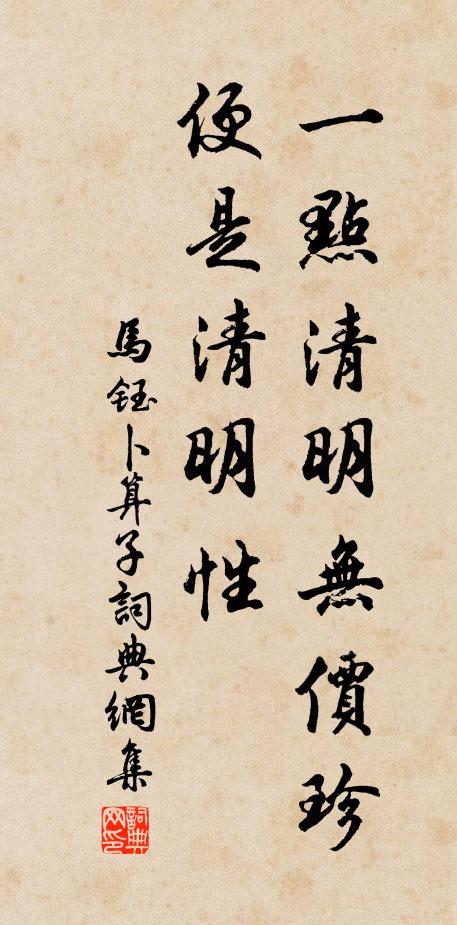 一點清明無價珍
便是清明性
馬鈺卜算子詞典網集
詞典网印